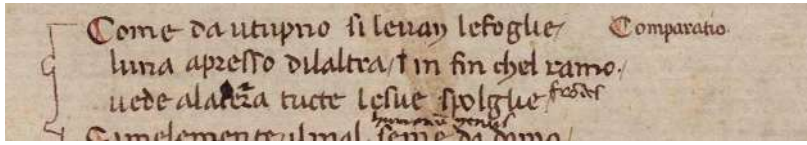 Come da utupno si leuan lefoglie Comparatio.
luna apresso dilaltra, in fin chel ramo.
uede alatera tucte lesue spolglie frodes
humanum genus
Similemente ilmal seme da damo